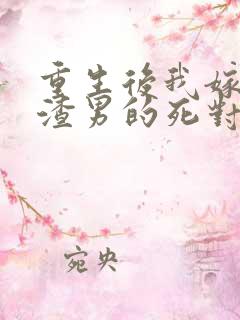 重生後我嫁
渣男的死對
宛央